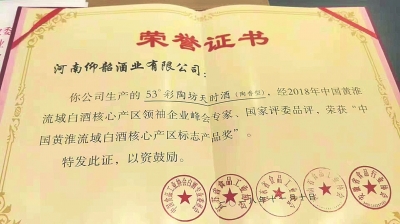 荣誉证书
河南仰韶酒业有限公司：
你公司生产的 53°彩陶坊天时酒（陶香型），经2018年中国黄淮
流域白酒核心产区领袖企业峰会专家、国家评委品评，荣获“中
国黄淮流域白酒核心产区标志产品奖”。
特发此证，以资鼓励。